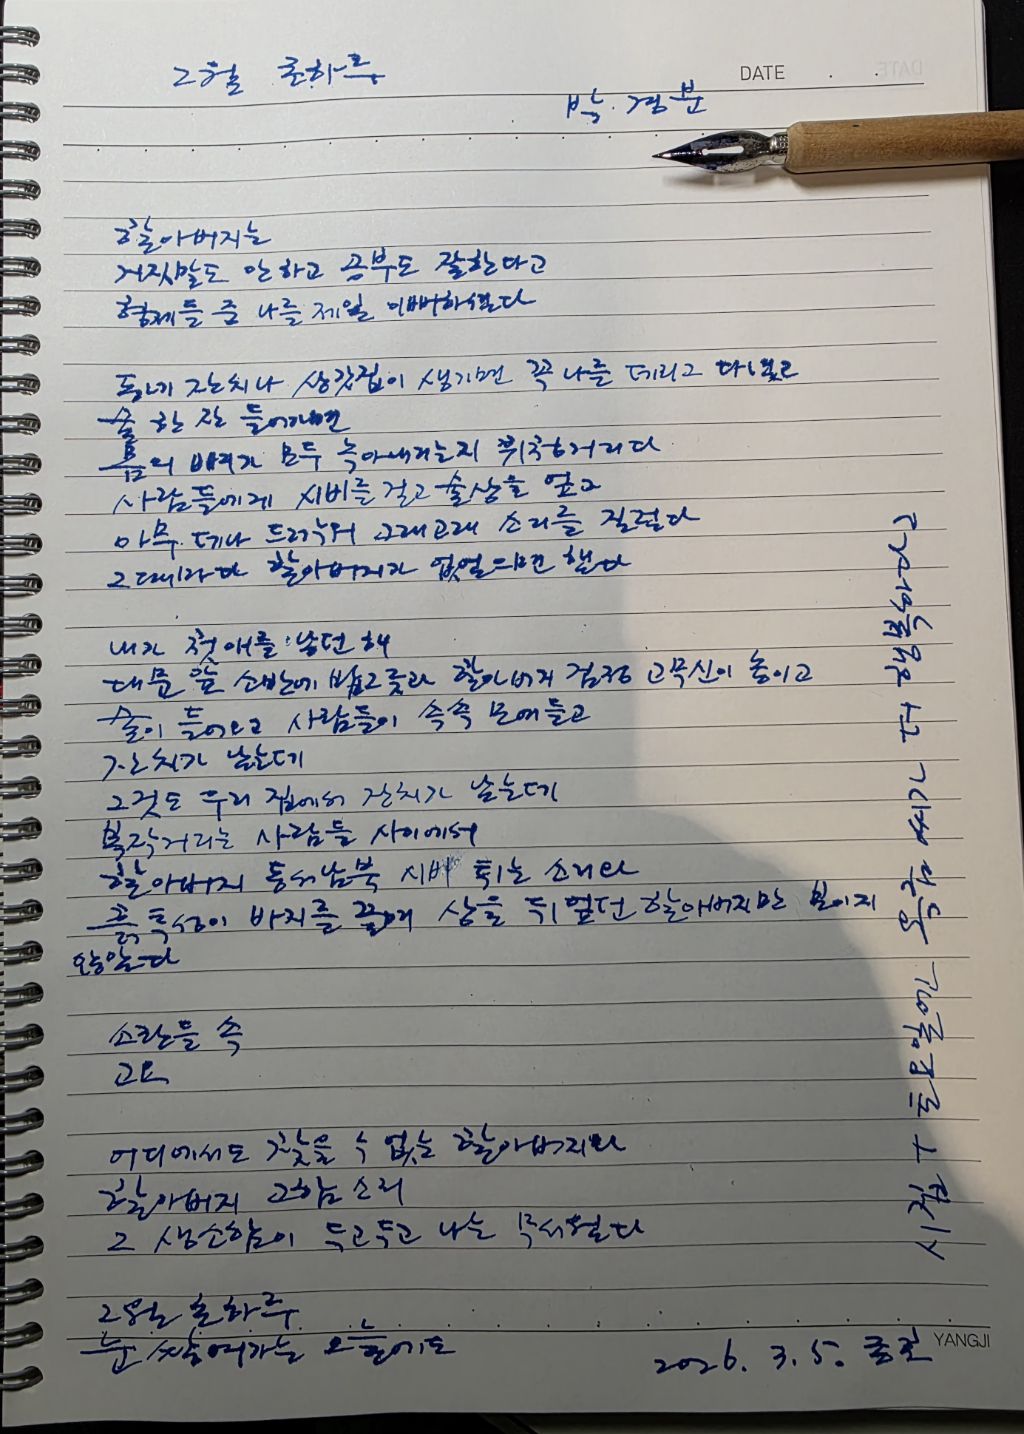 2월 초하루
DATE . .
박경분
할아버지는
거짓말도 안하고 공부도 잘한다고
형제들 중 나를 제일 이뻐하셨다
동네 잔치나 상갓집이 생기면 꼭 나를 데리고 다녔고
술 한 잔 들어가면
몸의 뼈가 모두 녹아내리는지 휘청거리다
사람들에게 시비를 걸고 술상을 엎고
아무 데나 드러누워 고래고래 소리를 질렀다
그때마다 할아버지가 없었으면 했다
내가 첫애를 낳던 해
대문 앞 소반에 밥그릇과 할아버지 검정 고무신이 놓이고
술이 들어오고 사람들이 속속 모여들고
잔치가 났는데
그것도 우리 집에서 잔치가 났는데
북작거리는 사람들 사이에서
할아버지 동서남북 시비 튀는 소리와
흙투성이 바지를 끌며 상을 뒤엎던 할아버지만 보이지
않았다
소란들 속
고요
어디에서도 찾을 수 없는 할아버지와
할아버지 고함소리
그 생소함이 두고두고 나는 무서웠다
2월 초하루
눈 쌓여가는 오늘에도
2026. 3. 5.
YANGJI